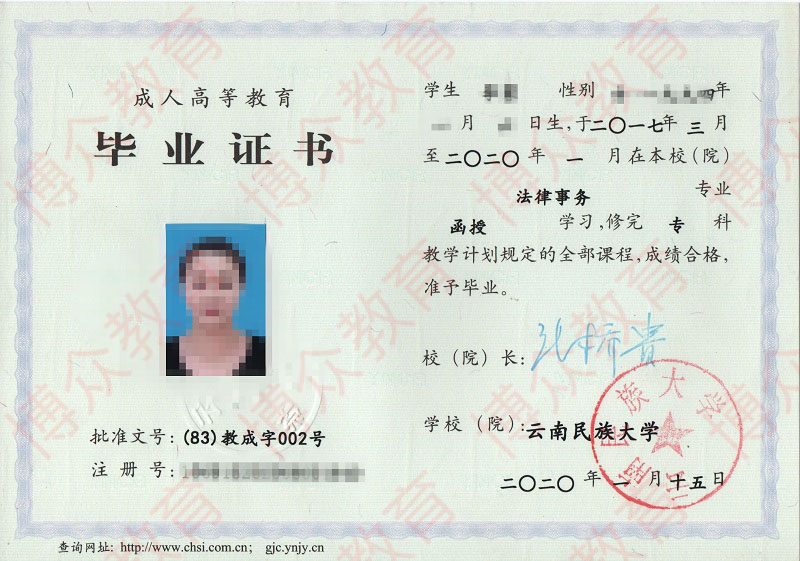 成人高等教育
毕业证书
批准文号:(83)教成字002号
注册号:
查询网址: http://www.chsi.com.cn; gjc.ynjy.cn
学生 性别 年
月 日生,于二〇一七年三月
至二〇二〇年一月在本校(院)
法律事务 专业
函授 学习,修完 专 科
教学计划规定的全部课程,成绩合格,
准予毕业。
校(院)长:
学校(院):云南民族大学
二〇二〇年一月十五日
云南民族大学
博众教育